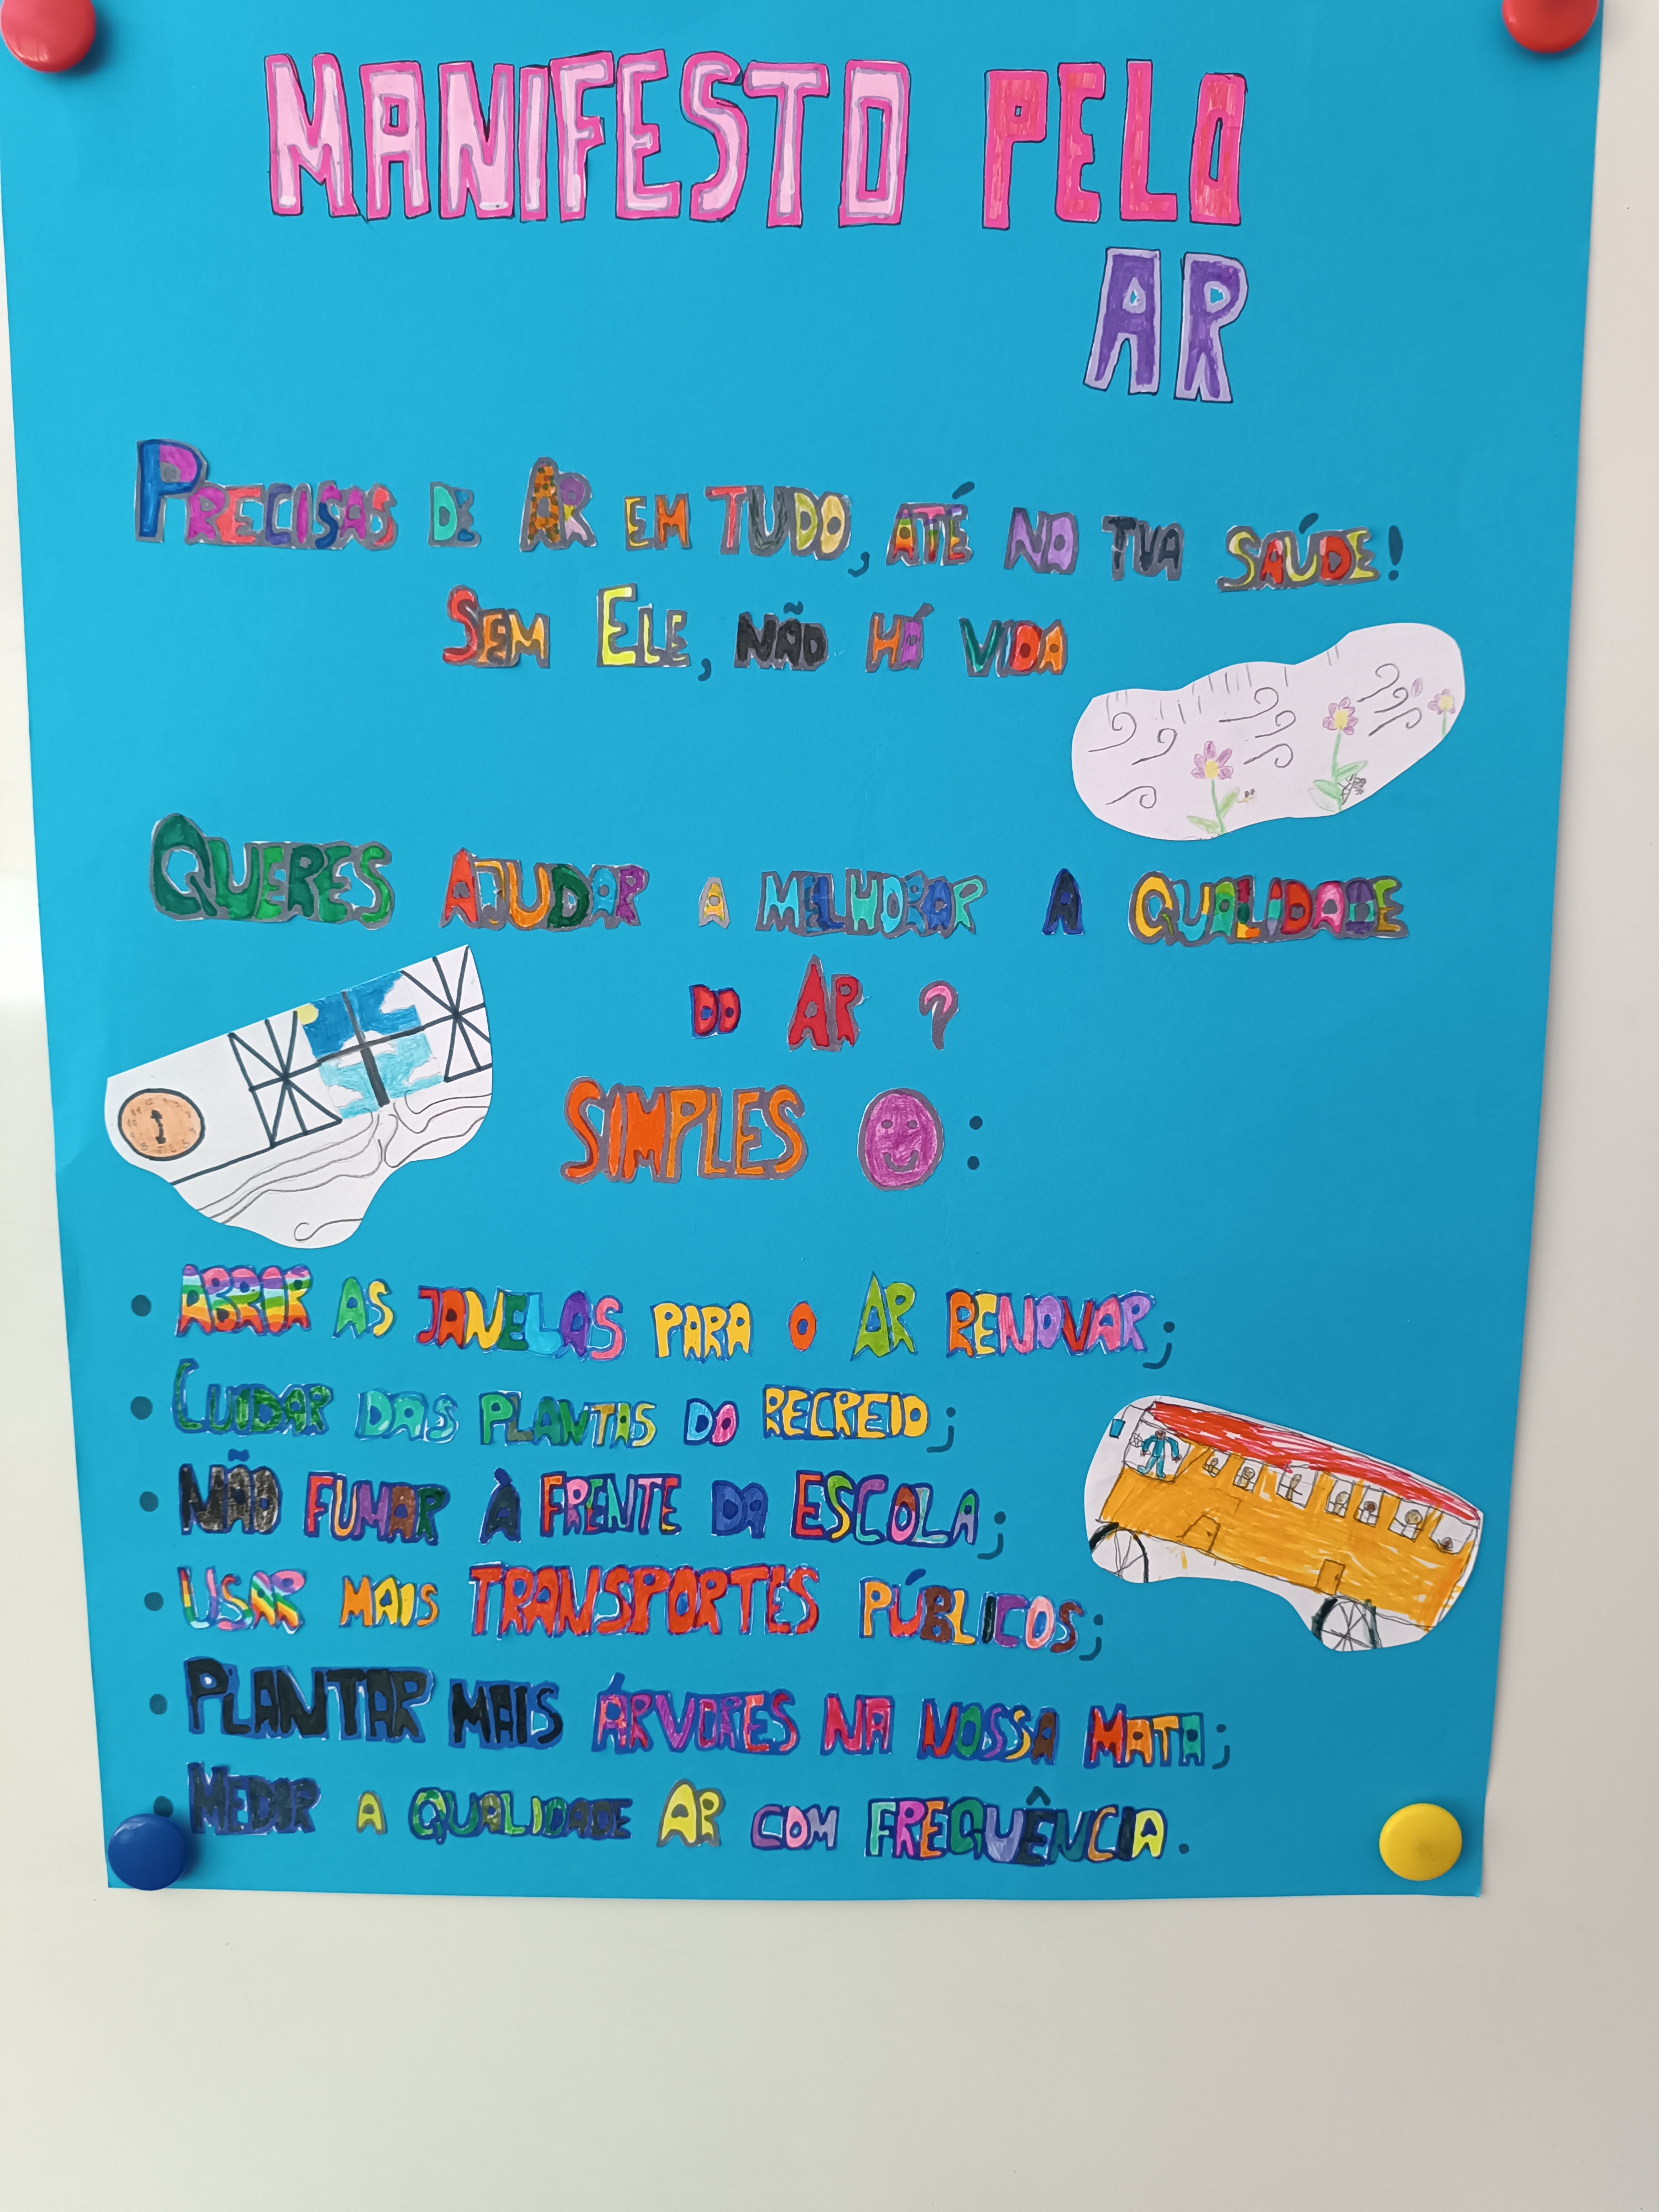 MANIFESTO PELO
AR
PRECISAS DE AR EM TUDO, ATÉ NA TUA SAÚDE!
SEM ELE, NÃO HÁ VIDA
QUERES AJUDAR A MELHORAR A QUALIDADE
DO AR ?
SIMPLES :
• ABRIR AS JANELAS PARA O AR RENOVAR;
• CUIDAR DAS PLANTAS DO RECREIO;
• NÃO FUMAR À FRENTE DA ESCOLA;
• USAR MAIS TRANSPORTES PÚBLICOS;
• PLANTAR MAIS ÁRVORES NA NOSSA MATA;
• MEDIR A QUALIDADE AR COM FREQUÊNCIA.